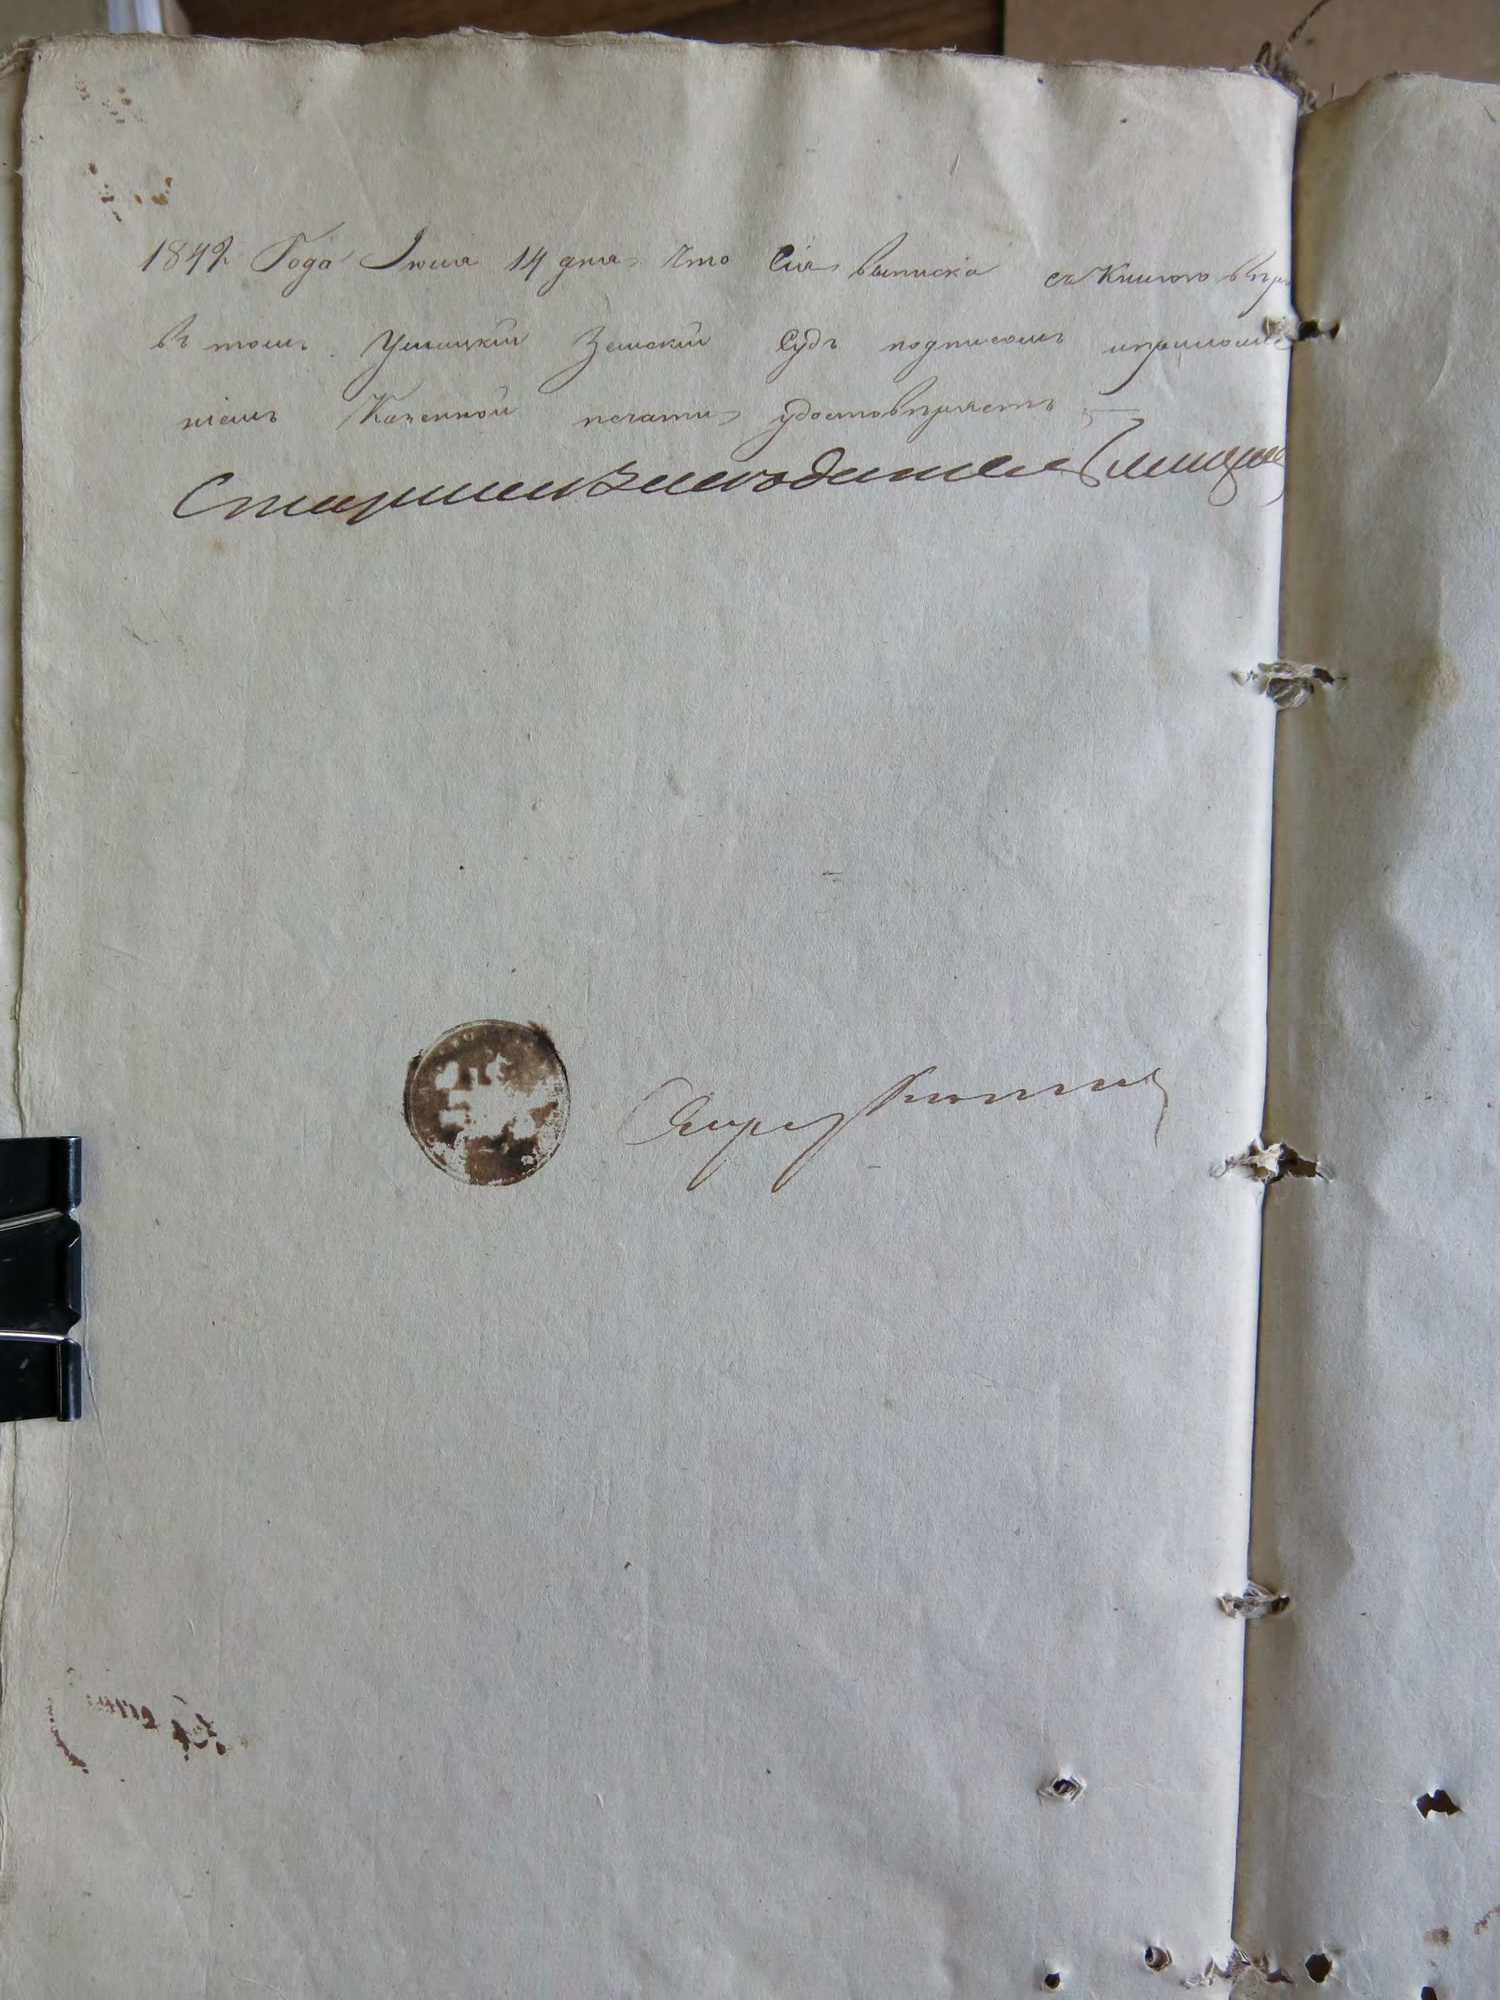 1842 Года Июля 14 дня что Сія выписка съ Книгою вѣр
въ томъ Ушицкій Земскій Судъ подписомъ и приложе
ніемъ Казенной печати удостовѣряетъ
Старшій Заседатель